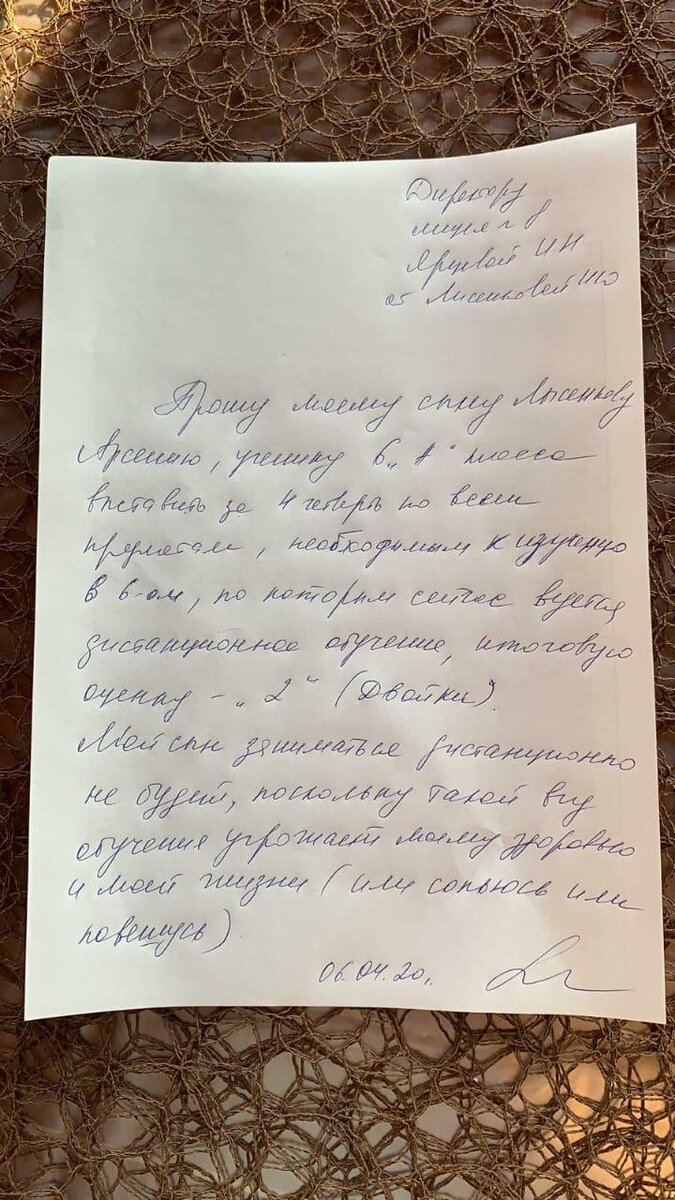 Директору
лицея № 8
Яруевой И Н
от Лысенковой Ю
Прошу моему сыну Лысенкову
Арсению, ученику 6 „А" класса
выставить за 4 четверть по всем
предметам, необходимым к изучению
в 6-ом, по которым сейчас ведется
дистанционное обучение, итоговую
оценку - „2" (Двойки).
Мой сын заниматься дистанционно
не будет, поскольку такой вид
обучения угрожает моему здоровью
и моей жизни (или сопьюсь или
повешусь)
06.04.20г.